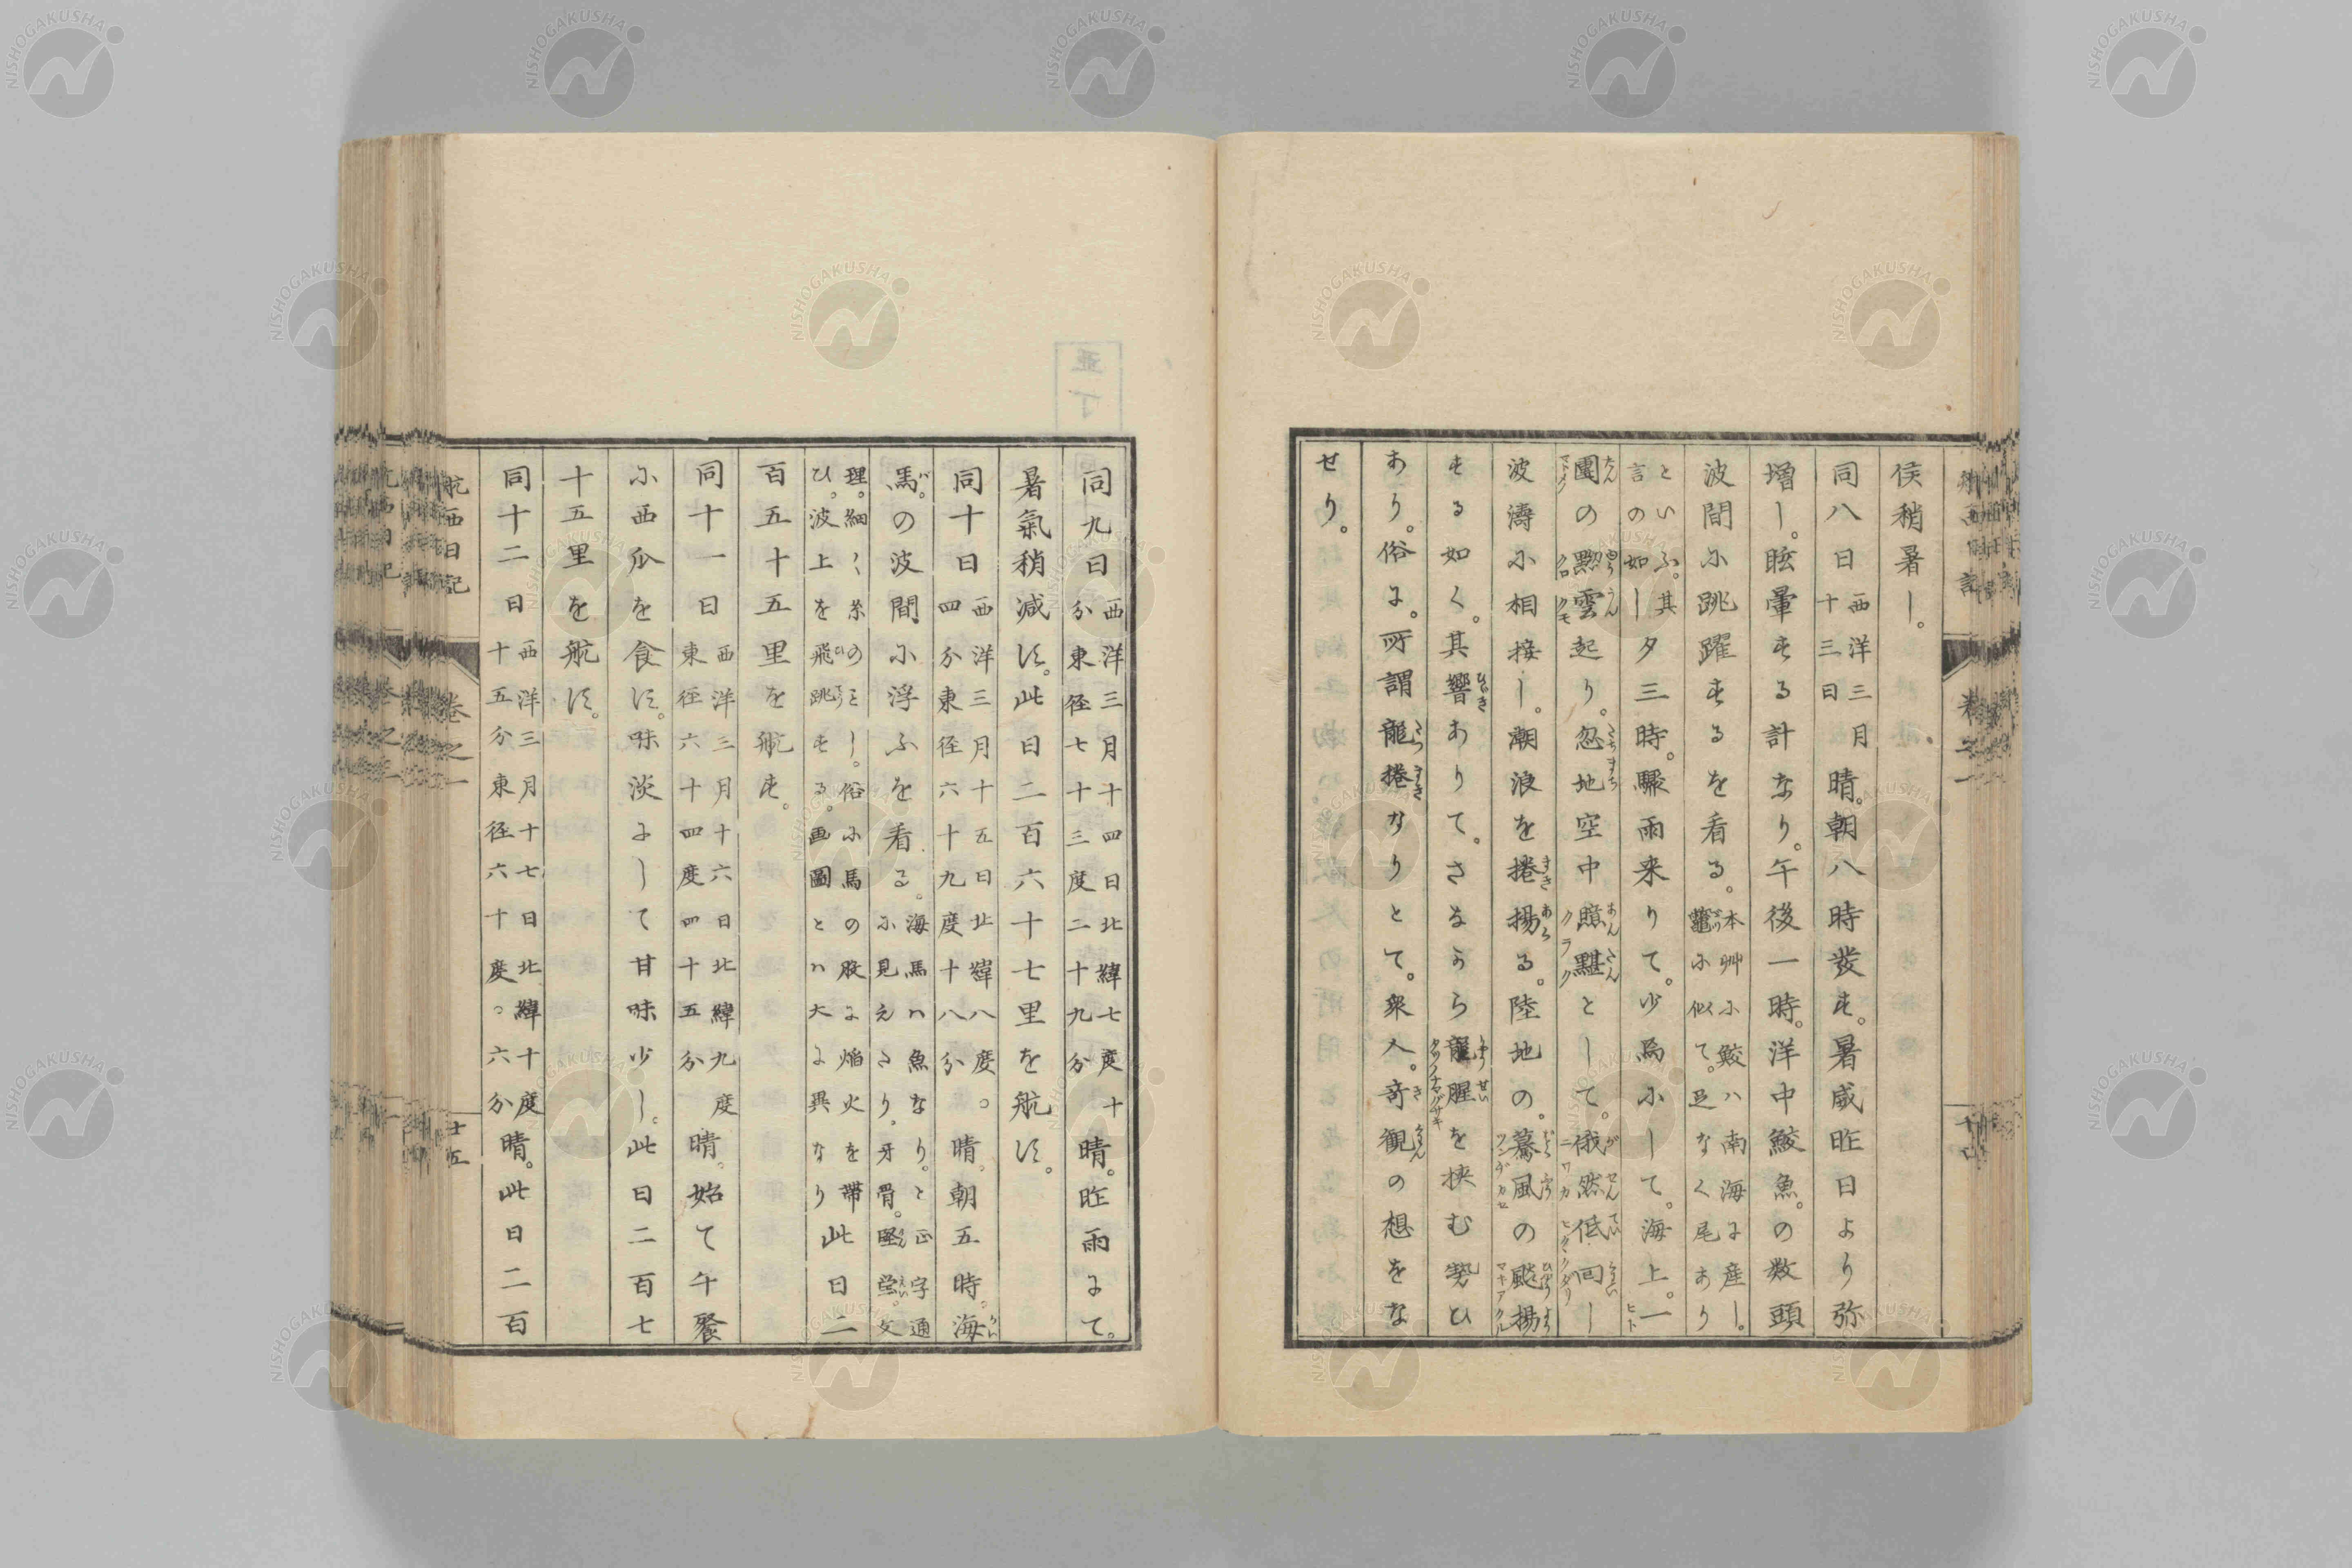 侯稍暑し。
同八日西洋三月十三日晴。朝八時發す。暑威昨日より弥
増し。眩暈する計なり。午後一時。洋中鮫魚。の数頭
波間に跳躍するを看る。本艸に鮫ハ南海に産し。鼉に似て。足なく尾あり
といふ。其言の如し夕三時。驟雨来りて。少焉にして。海上。一
團の黟雲起り。忽地空中黯黮として。俄然低回し
波濤に相接し。潮浪を捲揚る。陸地の。驀風の颷揚
する如く。其響ありて。さながら龍腥を挟む勢ひ
あり。俗に。所謂龍捲なりとて。衆人。奇観の想をな
せり。
航西日記
巻之一
同九日西洋三月十四日北緯七度十分東径七十三度二十九分晴。昨雨にて。
暑氣稍減ず。此日二百六十七里を航ず。
同十日西洋三月十五日北緯八度。四分東径六十九度十八分晴。朝五時。海
馬。の波間に浮ふを看る。海馬ハ魚なり。と正字通に見えたり。牙骨。堅瑩。文
理。細〻糸のことし。俗に馬の股に焔火を帯ひ。波上を飛跳する。画圖とハ大に異なり此日二
百五十五里を航す。
同十一日西洋三月十六日北緯九度東径六十四度四十五分晴。始て午餐
に西瓜を食ず。味淡にして甘味少し。此日二百七
十五里を航ず。
同十二日西洋三月十七日北緯十度十五分東径六十度。六分晴。此日二百
航西日記
巻之一
十五
NISHOGAKUSHA